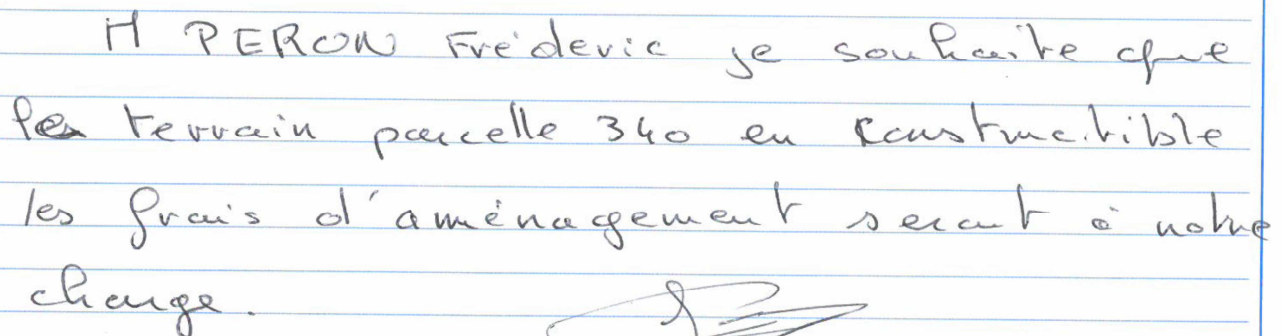 M PERON Fréderic je souhaite que
le terrain parcelle 340 en constructible
les frais d'aménagement serait à notre
charge.